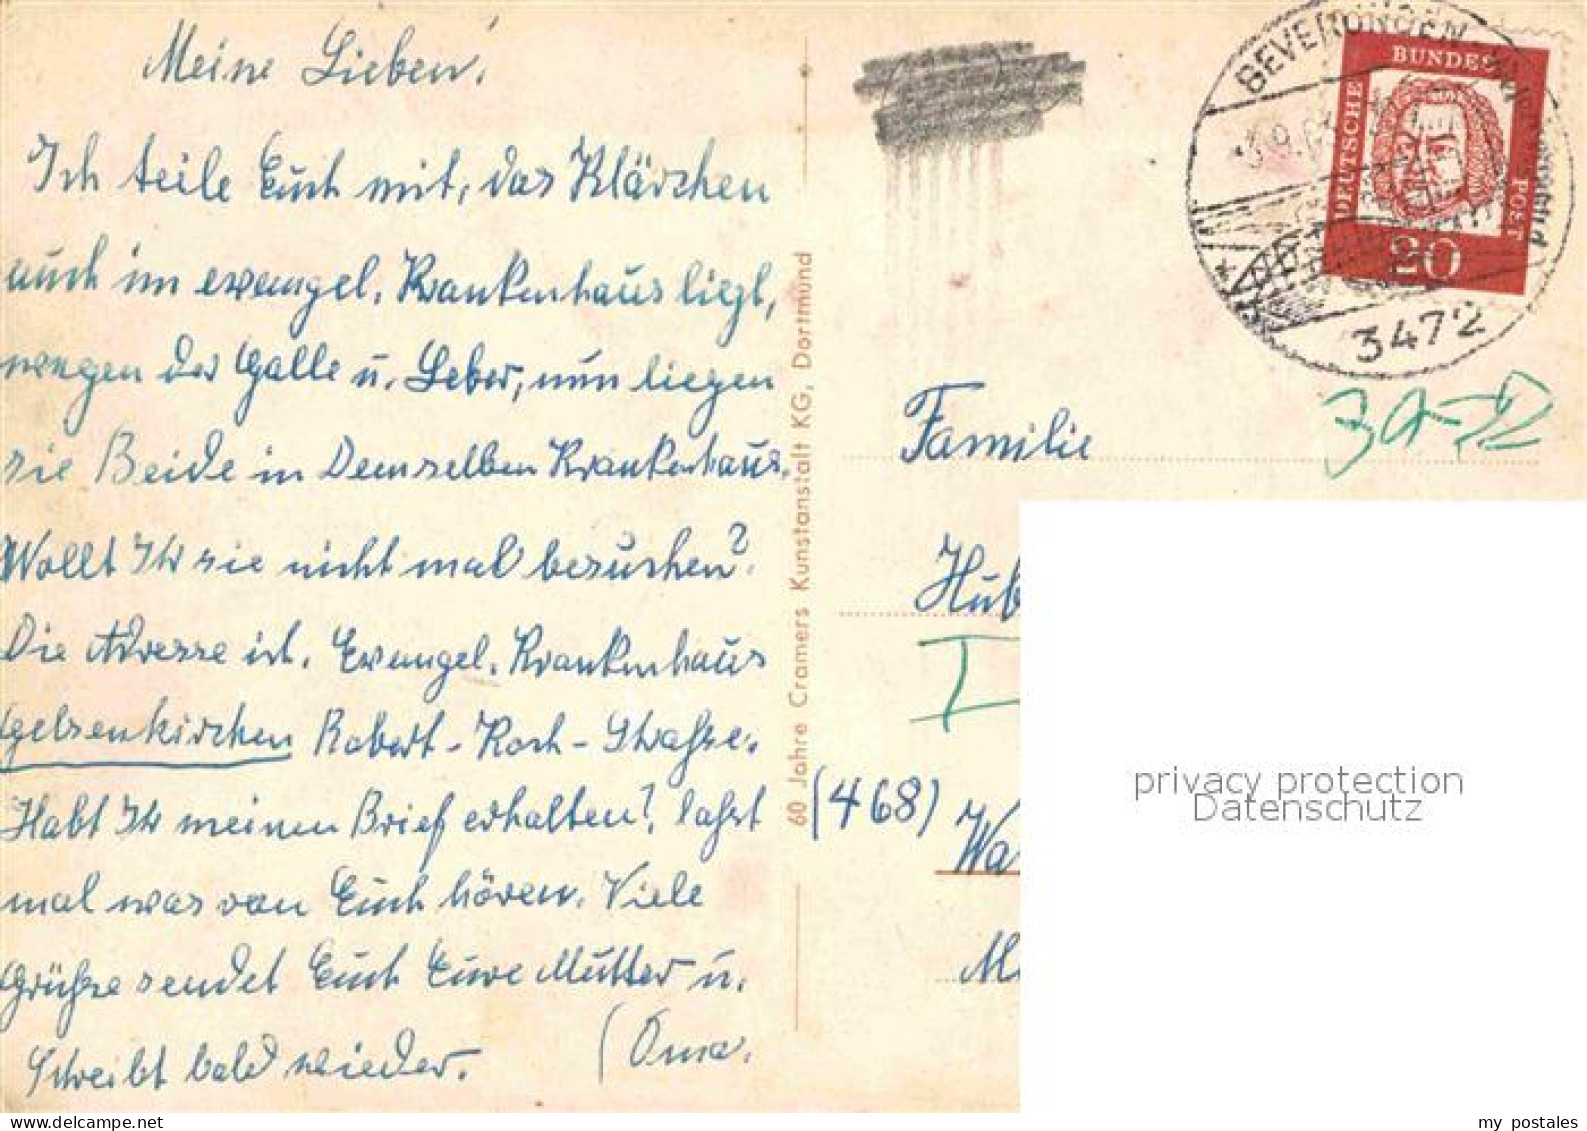 Meine Lieben!
Ich teile Euch mit, das Klärchen
auch im evangel. Krankenhaus liegt,
wegen der Galle u. Leber, nun liegen
sie Beide in Demselben Krankenhaus.
Wollt Ihr sie nicht mal besuchen?
Die Adresse ist. Evangel. Krankenhaus
Gelsenkirchen Robert-Koch-Strasse.
Habt Ihr meinen Brief erhalten?, lasst
mal was von Euch hören. Viele
Grüsse sendet Euch Eure Mutter u.
Schreibt bald wieder. (Oma.
60 Jahre Cramers Kunstanstalt KG, Dortmund
BEVERUNGEN
3472
DEUTSCHE
BUNDES
POST
20
Familie
Hub
I
(468) Wa
M
privacy protection
Datenschutz
www.delcampe.net
my_postales